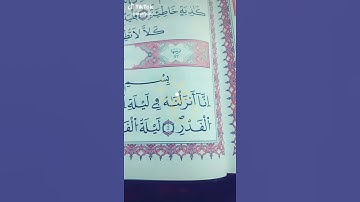 TikTok
كَـٰذِبَةٍ خَاطِئَةٍ
كَلَّا لَا تُطِ
بِسْمِ
إِنَّا أَنزَلْنَـٰهُ فِي لَيْلَةِ
الْقَدْرِ ٢ لَيْلَةُ الْقَ